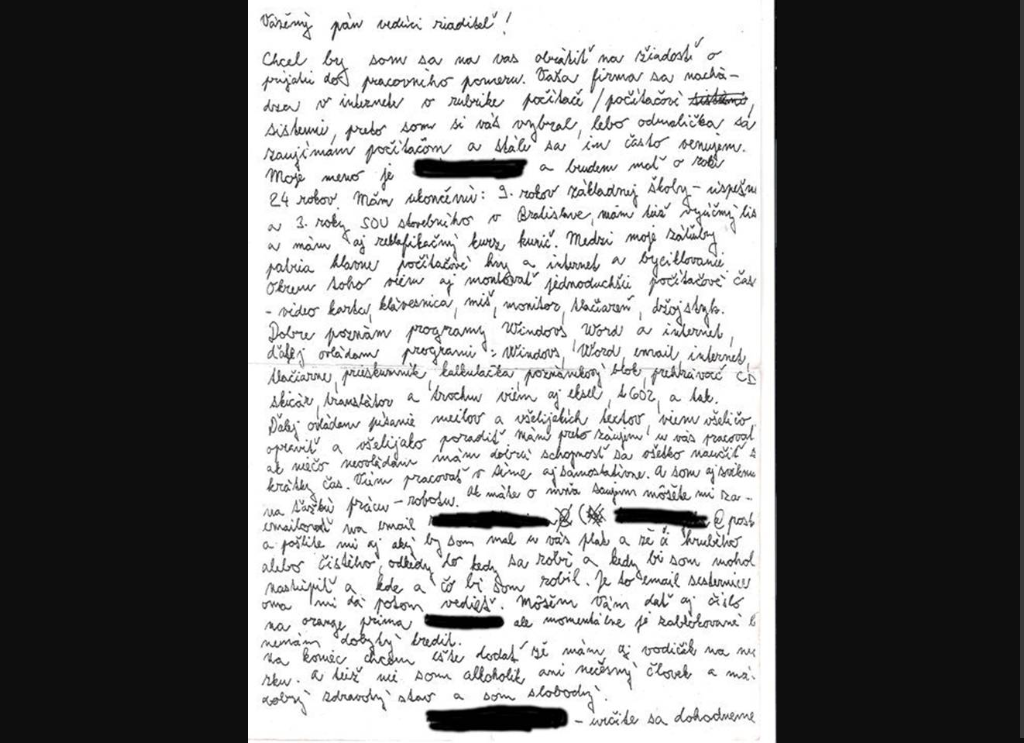 Vážený pán vedúci riaditeľ!
Chcel by som sa na vas obrátiť na žiadosť o
prijatii do pracovního pomeru. Vaša firma sa nachá-
dza v internete v rubrike počítače / počítačové
sistemi, preto som si vás vybral, lebo odmalička sa
zaujímám počítačom a stále sa im často venujem.
Moje meno je a budem mať o roki
24 rokov. Mám ukončenú: 9. rokov základnej školy - uspešne
a 3. roky SOU stavebního v Bratislave, mám též vyučný lis
a mám aj reklafikačný kurz kurič. Medzi moje záluby
patria hlavne počítačové hry a internet a byciklovanie
Okrem toho viem aj montovať jednoduchšii počítačové čas
- video karta, klávesnica, miš, monitor, tlačiareň, džojstyk.
Dobre poznám programy Windovs Word a internet,
ďalej ovládam programi: Windovs, Word, email, internet,
tlačiarne, prieskumník, kalkulačka poznámkový blok, prehrávač CD
skicár, translátor a trochu viem aj eksel, t602, a tak.
Ďalej ovládam písanie meilov a všelijakich textov, viem všeličo
opraviť a všelijako poradiť mám preto záujem u vás pracovat
ak niečo neovládam mám dobrú schopnosť sa všetko naučiť s
krátky čas. Viem pracovať v tíme aj samostatovne. A som aj zviknu
na ťažkú prácu - robotu. Ak máte o mňa saujem môžete mi za-
emailovať na email @ post
a pošlite mi aj aký by som mal u vás plat a zě či hrubího
alebo čistého, odkedy do kedy sa robí a kedy bi som mohol
nastúpiť a kde a čo bi som robil. Je to email sesternice
ona mi dá potom vedieť. Môžem Vám dať aj číslo
na orange prima ale momentálne je zablokované
nemám dobytý kredit.
Na koniec chcem ešte dodať zě mám aj vodičák na
a též nie som alkoholik ani nečesný človek a má
dobrý zdravotný stav a som slobodný.
- určite sa dohodneme